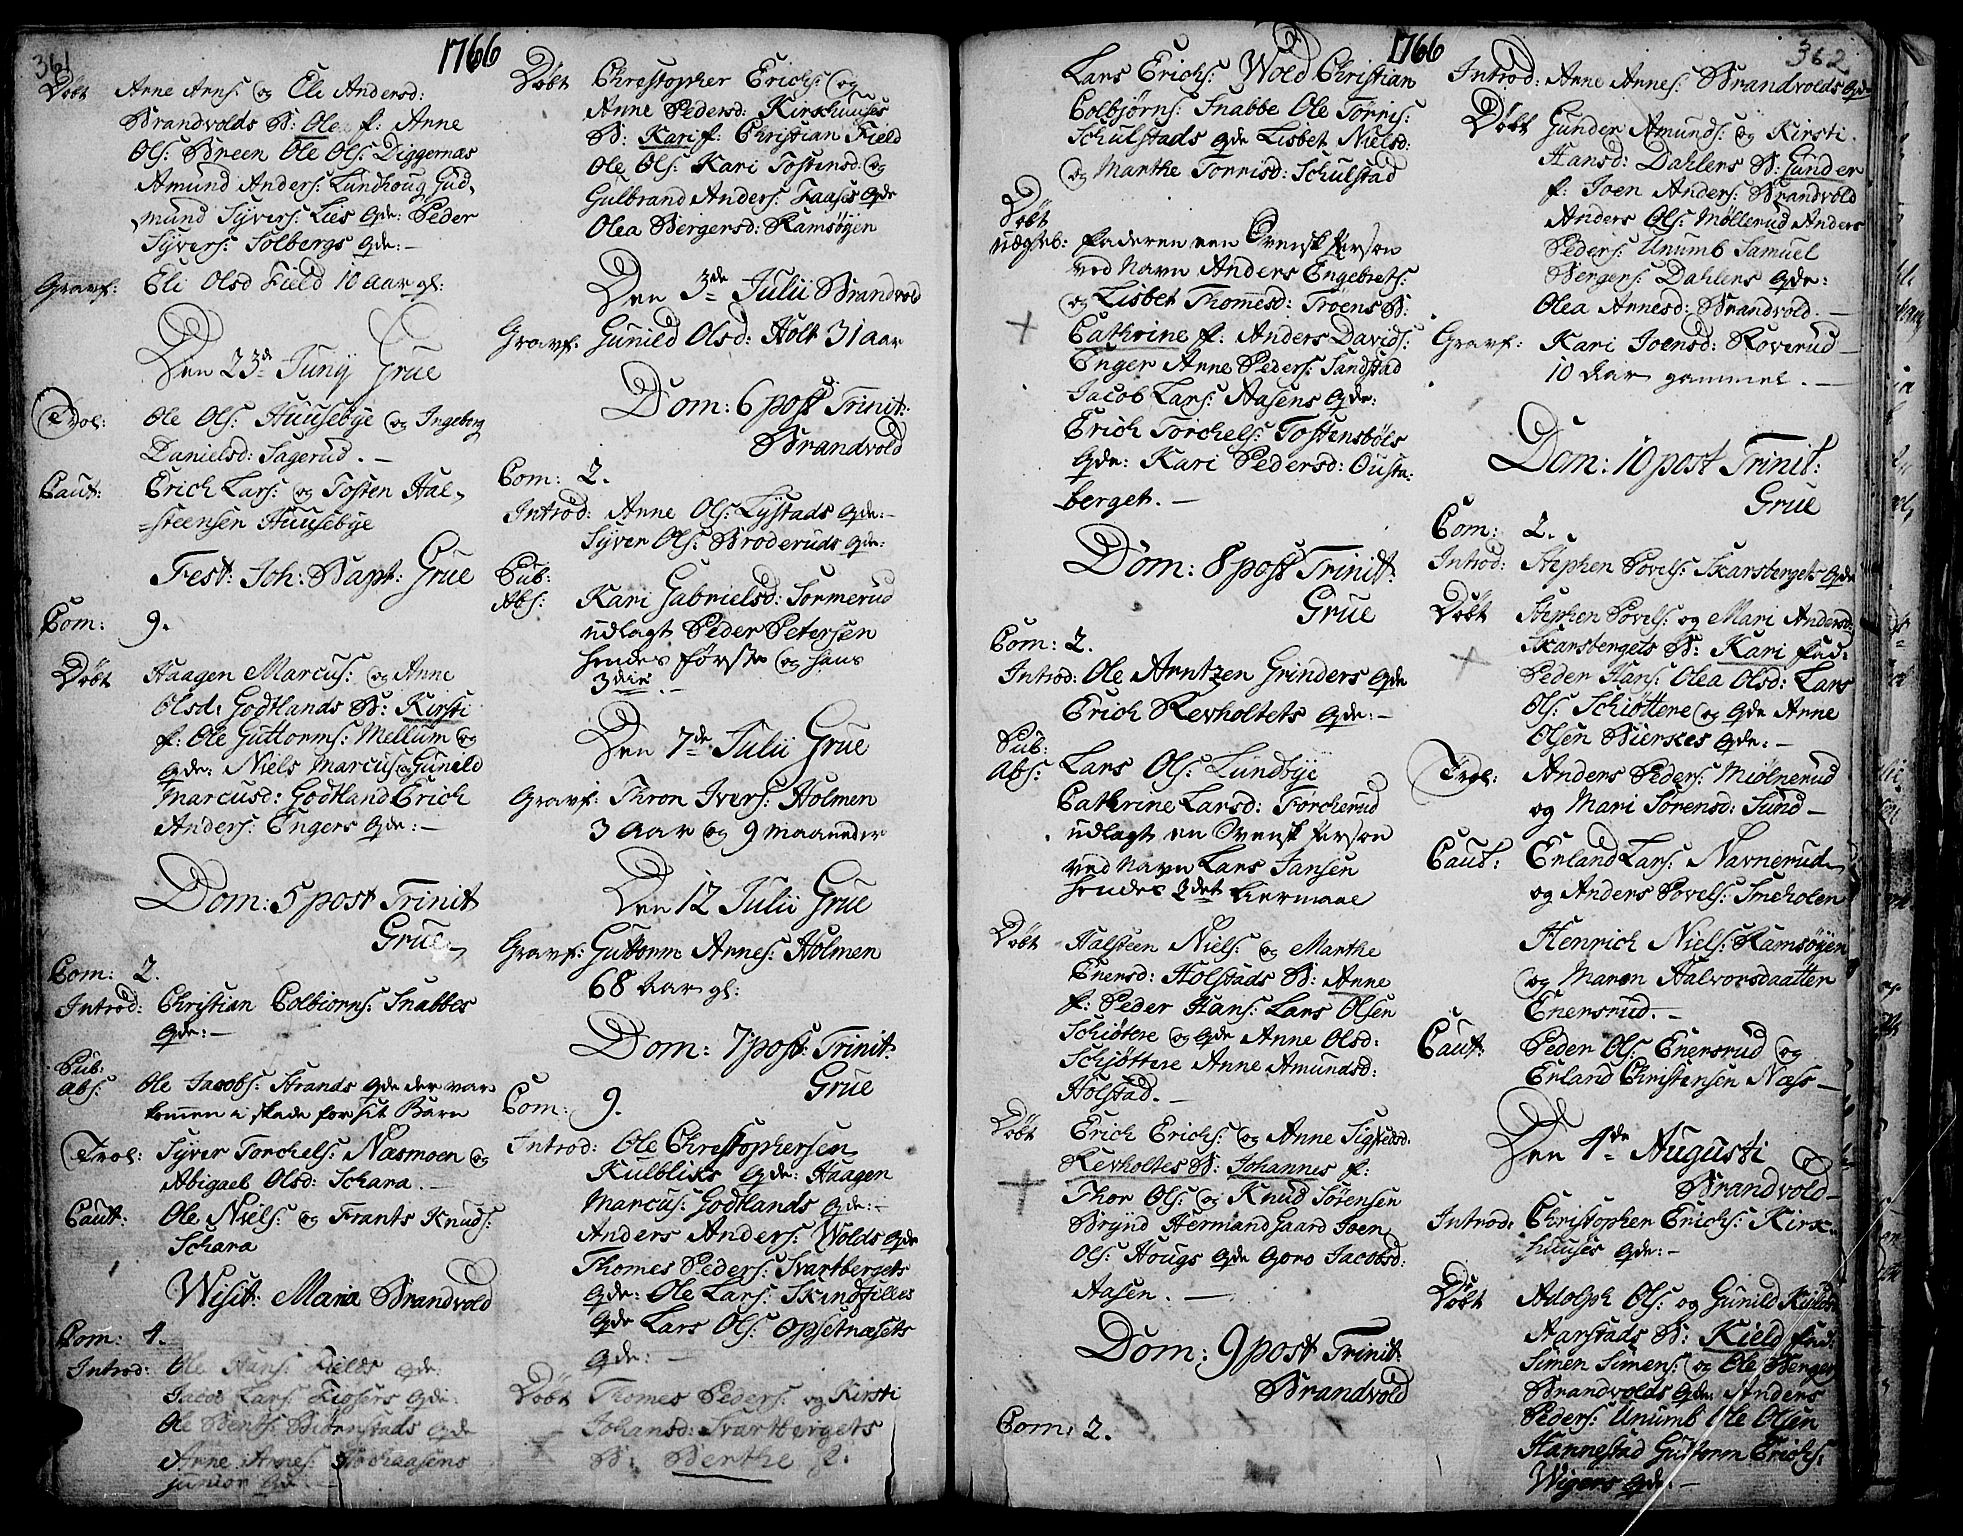 361
1766
Døbt Arne Arns: og Ele Andersd:
Brandvolds B: Olea f: Anne
Ols: Breen Ole Ols: Diggernæs
Amund Anders: Lundhoug Gud-
mund Syvers: Lies qde: Peder
Syvers: Solbergs qde: -
Gravf: Eli Olsd Field 10 aar gl:
Den 23de Junÿ Grue
Trol: Ole Ols: Huusebye og Ingeborg
Danielsd: Sagerud. -
Caut: Erich Lars: og Tosten Hal-
steensen Huusebye
Fest: Joh: Bapt: Grue
Com: 9.
Døbt Haagen Marcus: og Anne
Olsd: Godtlands B: Kirsti
f: Ole Guttorms: Mellum og
qde: Niels Marcus: og Gunild
Marcusd: Godtland Erich
Anders: Engers qde: -
Dom: 5 post Trinit
Grue
Com: 2.
Introd: Christian Colbiorns: Snabbes
qde: -
Pub:
Abs: Ole Jacobs: Strands qde der var
kommen i skade for sit Barn
Trol: Syver Torchels: Næsmoen og
Abigael Olsd: Schara. -
Caut: Ole Niels: og Frants Knuds:
Schara
Wisit: Maria Brandvold
Com: 4.
Introd: Ole Hans: Fields qde:
Jacob Lars: qde:
Ole Bents: qde
Arne Arnes:
junior qde -
Døbt Christopher Erichs: og
Anne Pedersd: Kirkhuuses
B: Kari f: Christian Field
Ole Ols: Kari Tostensd: og
Gulbrand Anders: Faass qde
Olea Bergersd: Ramsøyen
Den 3de Julii Brandvold
Gravf: Gunild Olsd: Holt 31 aar
Dom: 6 post Trinit:
Brandvold
Com: 2.
Introd: Anne Ols: Lystads qde: -
Syver Ols: Broderuds qde:
Pub:
Abs: Kari Gabrielsd: Sormerud
udlagt Peder Petersen
hendes første og hans
3die. -
Den 7de Julii Grue
Gravf: Thron Ivers: Holmen
3 aar og 9 maaneder
Den 12 Julii Grue
Gravf: Guttorm Arnes: Holmen
68 aar gl:
Dom: 7 post: Trinit:
Grue
Com: 9.
Introd: Ole Christophersen
Kulbliks qde: Haagen
Marcus: Godtlands qde: -
Anders Anders: Wolds qde
Thomes Peders: Svartbergets
qde: Ole Lars: Skindfilles
qde Lars Ols: Opsetnæsets
qde: -
Døbt Thomes Peders: og Kirsti
Johansd: Svartbergets
B: Berthe f:
1766
362
Lars Erichs: Wold Christian
Colbjørns: Snabbe Ole Torris:
Schulstads qde Lisbet Nielsd:
og Marthe Torrisd: Schulstad
Døbt
uægteb: faderen een Svensk Person
ved Navn Anders Engebrets:
og Lisbet Thomesd: Troens B:
Cathrine f: Anders Davids:
Enger Anne Peders: Sandstad
Jacob Lars: Aasens qde:
Erich Torchels: Tostensbøls
qde: Kari Pedersd: Ousta-
berget. -
Dom: 8 post Trinit:
Grue
Com: 2.
Introd: Ole Arntzen Grinders qde
Erich Revholtets qde: -
Pub:
Abs: Lars Ols: Lundbye
Cathrine Larsd: Torcherud
udlagt en Svensk Person
ved Navn Lars Jansen
hendes 2det Leiermaal
Døbt Halsteen Niels: og Marthe
Enersd: Holstads B: Anne
f: Peder Hans: Lars Olsen
Schiøtere og qde Anne Olsd:
Schjøttere Anne Amundsd:
Holstad. -
Døbt Erich Erichs: og Anne Sigfredsd:
Revholtes B: Johannes f:
Thor Ols: og Knud Sørensen
Brynd Hermand Gaard Joen
Ols: Hougs qde Goro Jacobsd:
Aasen. -
Dom: 9 post Trinit:
Brandvold
Com: 2.
Introd: Arne Arnes: Brandvolds qde
Døbt Gunder Amunds: og Kirsti
Hansd: Dahlens B: Gunder
f: Joen Anders: Brandvold
Anders Ols: Møllerud Anders
Peders: Unumb Samuel
Bergers: Dahlens qde:
Olea Arnesd: Brandvold. -
Gravf: Kari Joensd: Roverud -
10 aar gammel. -
Dom: 10 post Trinit:
Grue
Com: 2.
Introd: Stephen Povels: Skarsbergets qde
Døbt Stephen Povels: og Mari Andersd:
Skarsbergets B: Kari fad:
Peder Hans: Olea Olsd: Lars
Ols: Schiøttere og qde Anne
Olsen Bierkes qde: -
Trol: Anders Peders: Miølnerud
og Mari Sørensd: Sund -
Caut: Erland Lars: Navnerud
og Anders Povels: Smeholen
Henrich Niels: Ramsøyen
og Maren Halvorsdaatter
Enersrud. -
Caut: Peder Ols: Enersrud og
Erland Christensen Næss -
Den 4de Augusti
Brandvold -
Introd: Christopher Erichs: Kirk-
huuses qde: -
Døbt Adolph Ols: og Gunild
Aarstads B: Kield fad:
Simen Simens: og Ole Berger
Brandvolds qde: Anders
Peders: Unumb Ole Olsen
Hannestad Guttorm Erichs:
Wigers qde: -